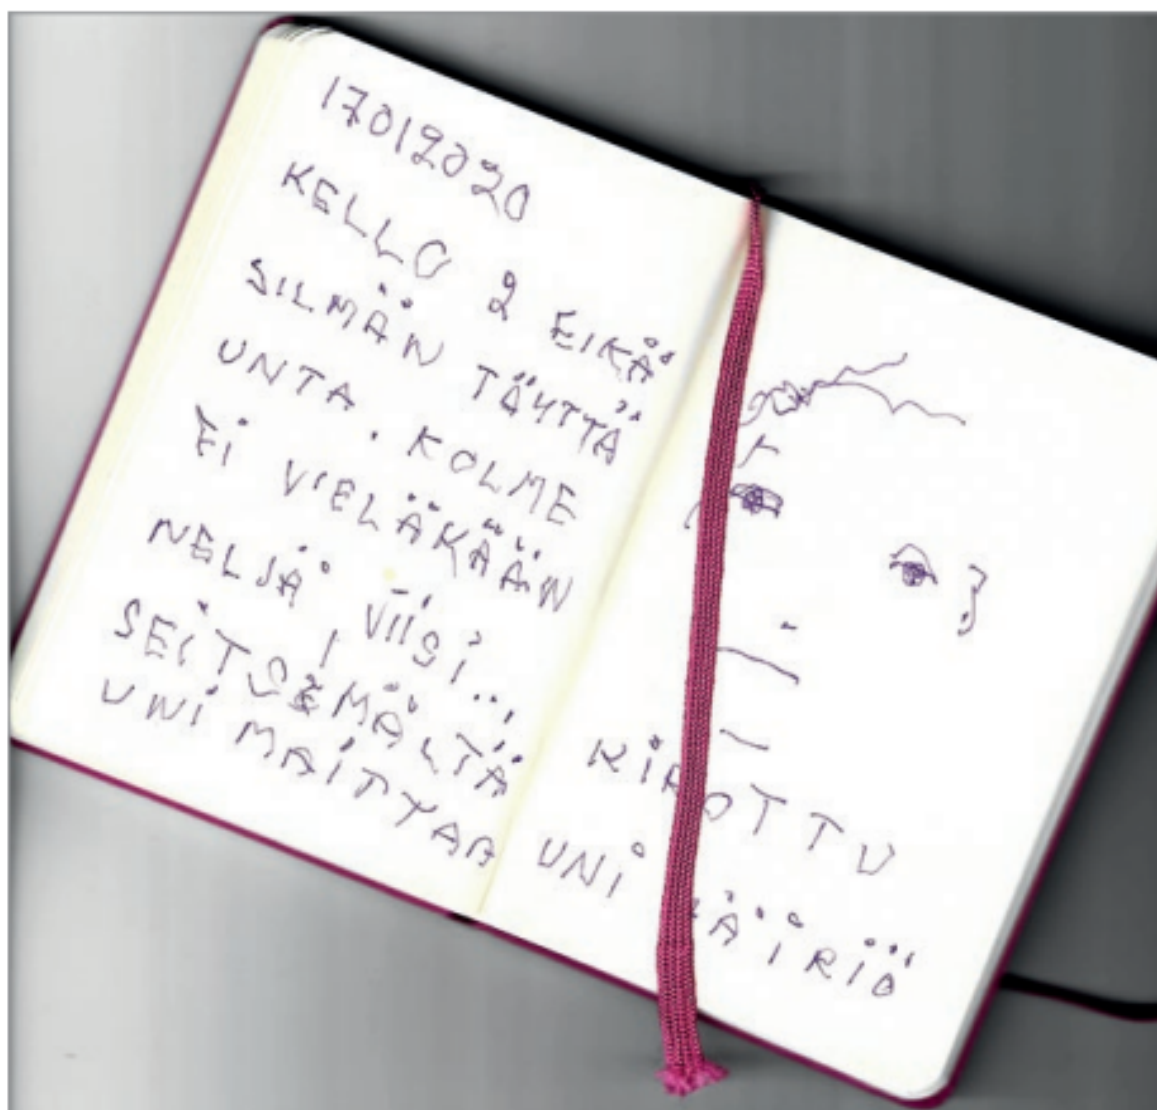 17012020
KELLO 2 EIKÄ
SILMÄN TÄYTTÄ
UNTA. KOLME
EI VIELÄKÄÄN
NELJÄ VIISI...
SEITSEMÄLTÄ
UNI MAITTAA
KIROTTU
UNI